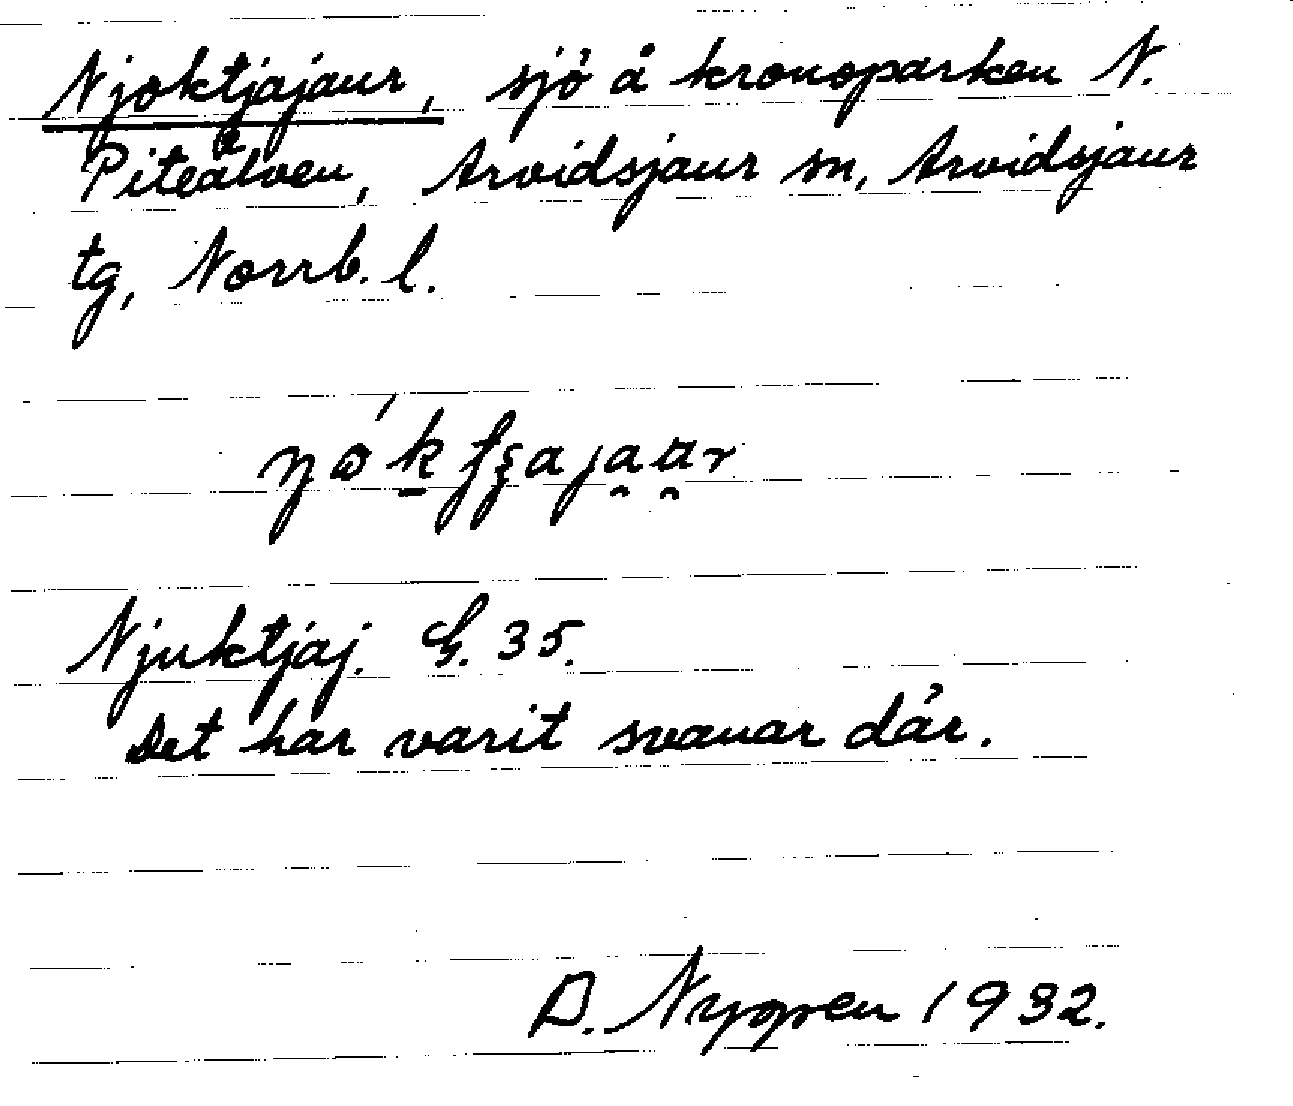 Njoktjajaur, sjö å kronoparken N.
Piteälven, Arvidsjaur sn, Arvidsjaur
tg, Norrb. l.
Njuktjaj. G. 35.
Det har varit svanar där.
D. Nygren 1932.